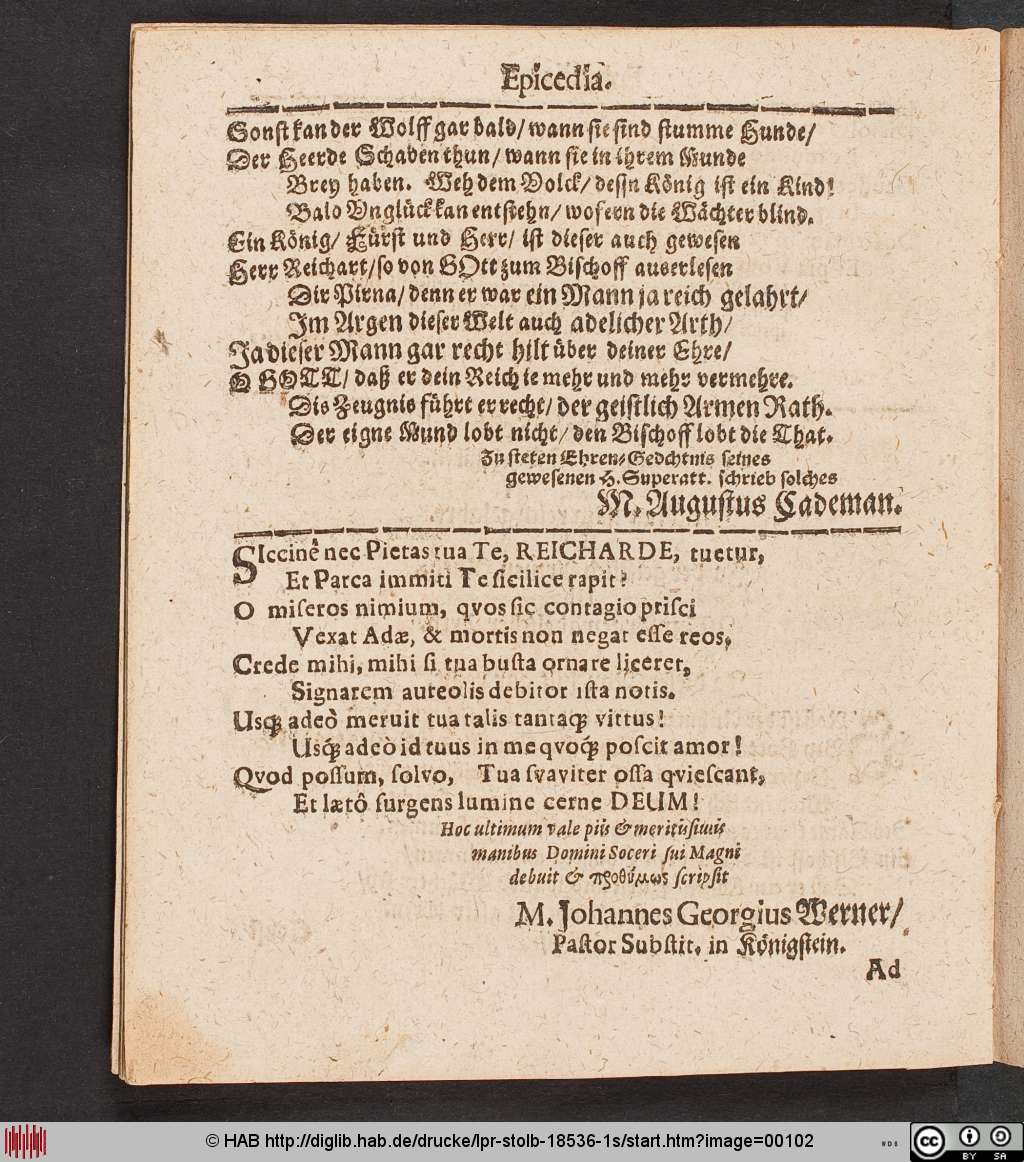 Epicedia.
Sonst kan der Wolff gar bald/ wann sie sind stumme Hunde/
Der Heerde Schaden thun/ wann sie in ihrem Munde
Brey haben. Weh dem Volck/ dessn König ist ein Kind!
Bald Vnglück kan entstehn/ wofern die Wächter blind.
Ein König/ Fürst und Herr/ ist dieser auch gewesen
Herr Reichart/ so von GOtt zum Bischoff auserlesen
Dir Pirna/ denn er war ein Mann ja reich gelahrt/
Im Argen dieser Welt auch adelicher Arth/
Ja dieser Mann gar recht hilt über deiner Ehre/
O GOTT/ daß er dein Reich ie mehr und mehr vermehre.
Dis Zeugnis führt er recht/ der geistlich Armen Rath.
Der eigne Mund lobt nicht/ den Bischoff lobt die That.
Zu steten Ehren-Gedchtnis seines
gewesenen H. Superatt. schrieb solches
M. Augustus Cademan.
SIccinè nec Pietas tua Te, REICHARDE, tuetur,
Et Parca immiti Te sicilice rapit?
O miseros nimium, qvos sic contagio prisci
Vexat Adæ, & mortis non negat esse reos,
Crede mihi, mihi si tua busta ornare liceret,
Signarem aureolis debitor ista notis.
Usq; adeò meruit tua talis tantaq; virtus!
Usq́; adeò id tuus in me qvoq́; poscit amor!
Qvod possum, solvo, Tua svaviter ossa qviescant,
Et lætô surgens lumine cerne DEUM!
Hoc ultimum vale piis & meritissimis
manibus Domini Soceri sui Magni
debuit & προθύμως scripsit
M. Johannes Georgius Werner/
Pastor Substit. in Königstein.
Ad
© HAB http://diglib.hab.de/drucke/lpr-stolb-18536-1s/start.htm?image=00102
WDB
cc
BY SA